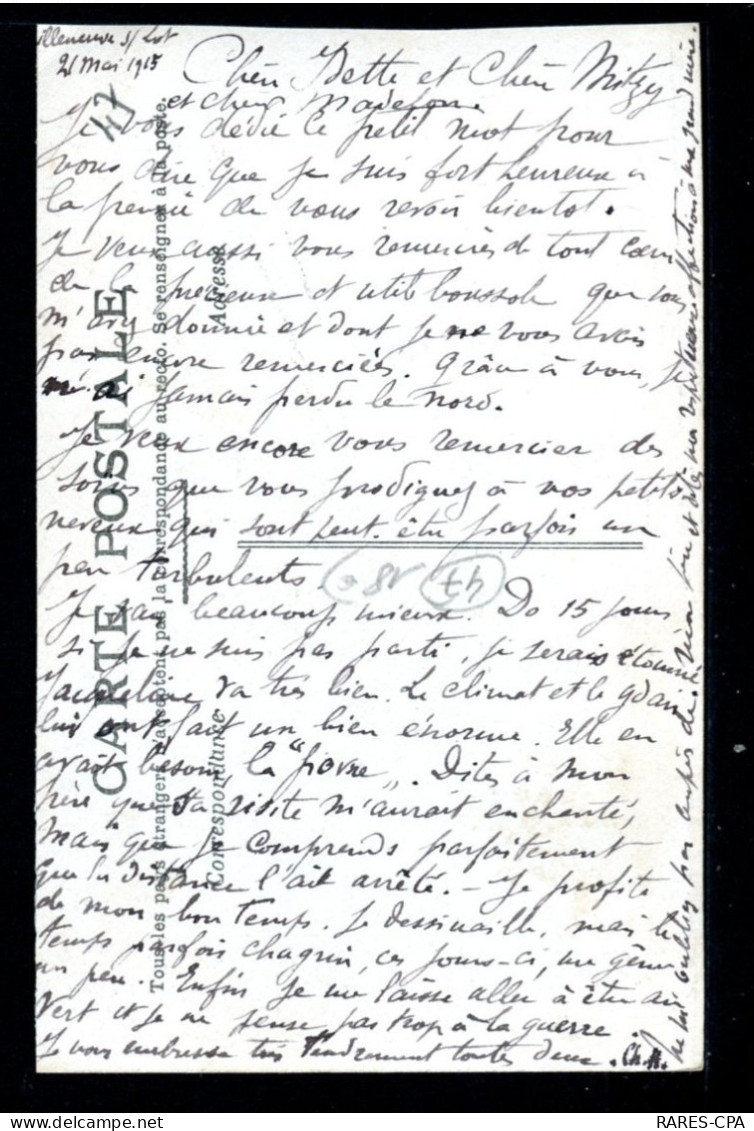 Villeneuve s/ Lot
21 Mai 1915
Chère Bette et Chère Mitzy
et chère
Je vous dédie ce petit mot pour
vous dire que je suis fort heureux à
la pensée de vous revoir bientot.
Je veux aussi vous remercier de tout cœur
de la précieuse et utile boussole que vous
m'avez donnée et dont je ne vous avais
pas encore remerciées. Grâce à vous, je
n'ai jamais perdu le nord.
Je veux encore vous remercier des
soins que vous prodiguez à vos petits
neveux qui sont peut-être parfois un
peu turbulents
Je vais beaucoup mieux. De 15 jours
si je ne suis pas parti, je serais étonné
Jacqueline va très bien. Le climat et le grand air
lui ont fait un bien énorme. Elle en
avait besoin, la "pauvre". Dites à mon
frère que sa visite m'aurait enchanté,
mais que je comprends parfaitement
que la distance l'ait arrêté. - Je profite
de mon bon temps. Je dessinaille, mais le
temps parfois chagrin, ces jours-ci, me gêne
un peu. Enfin je me laisse aller à être au
vert et je ne pense pas trop à la guerre.
Je vous embrasse très tendrement toutes deux. Ch. M.
ne m'oubliez pas auprès de mon père et dites ma respectueuse affection à ma grand mère.
CARTE POSTALE
Tous les pays étrangers n'acceptent pas la correspondance au recto. Se renseigner à la poste.
Correspondance
Adresse
47
47
18€
RARES-CPA